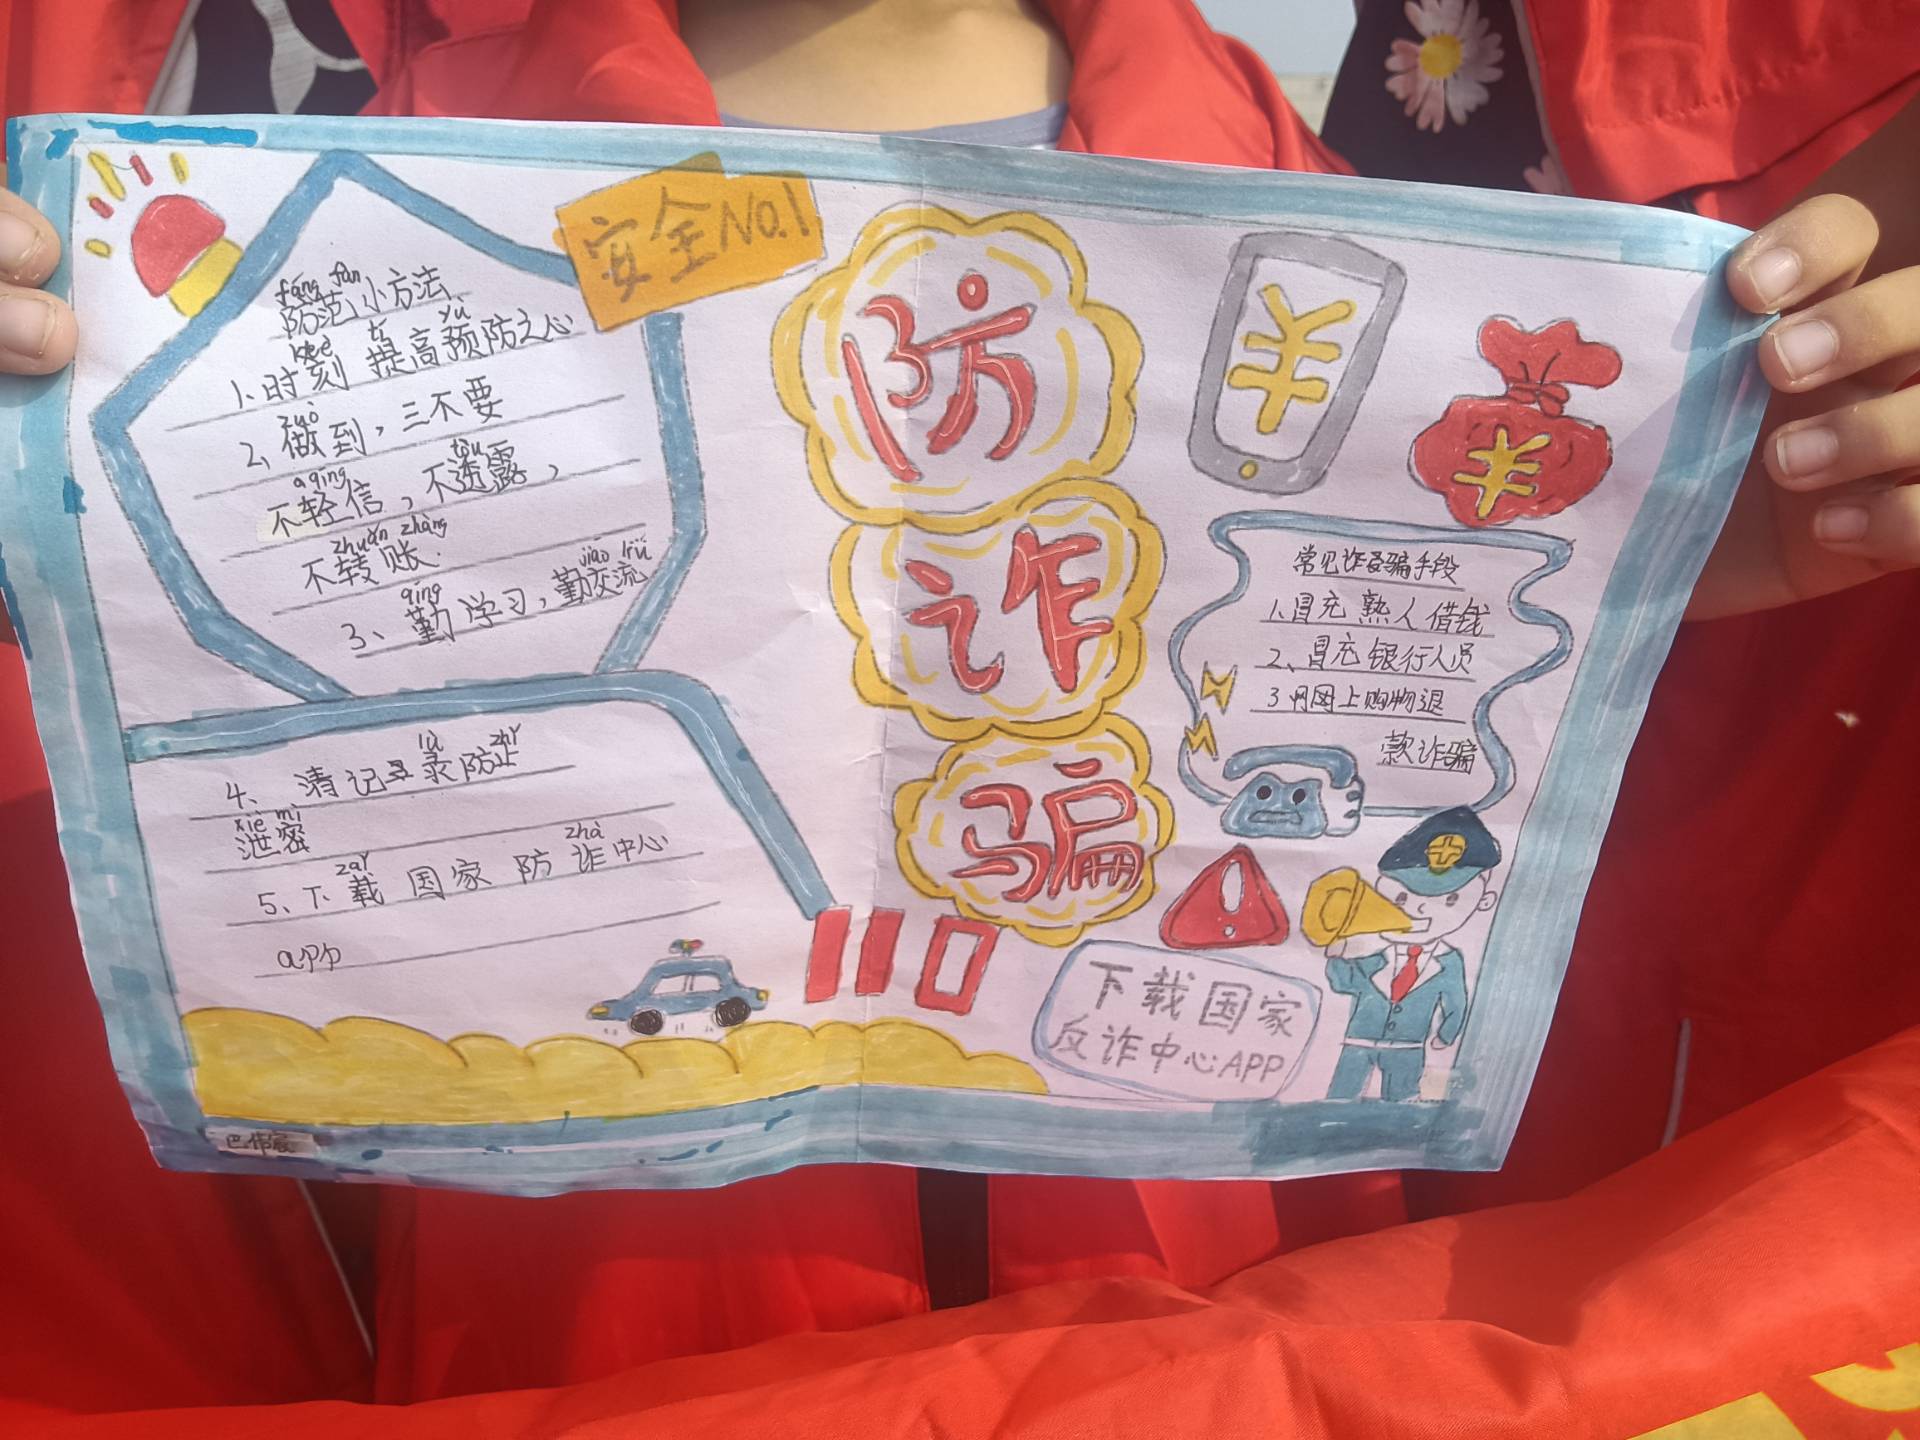 安全NO.1
fáng fàn
防范小方法
kè tí yù
1、时刻 提高预防之心
zuò
2、做到，三不要
qīng tòu
不轻信，不透露，
zhuǎn zhàng
不转账.
qíng jiāo liú
3、勤学习，勤交流
lù zhǐ
4、清记录防止
xiè mì
泄密
zài zhà
5、下载 国家 防诈中心
app
防
诈
骗
110
常见诈骗手段
1.冒充熟人借钱
2、冒充银行人员
3网上购物退
款诈骗
下载国家
反诈中心APP